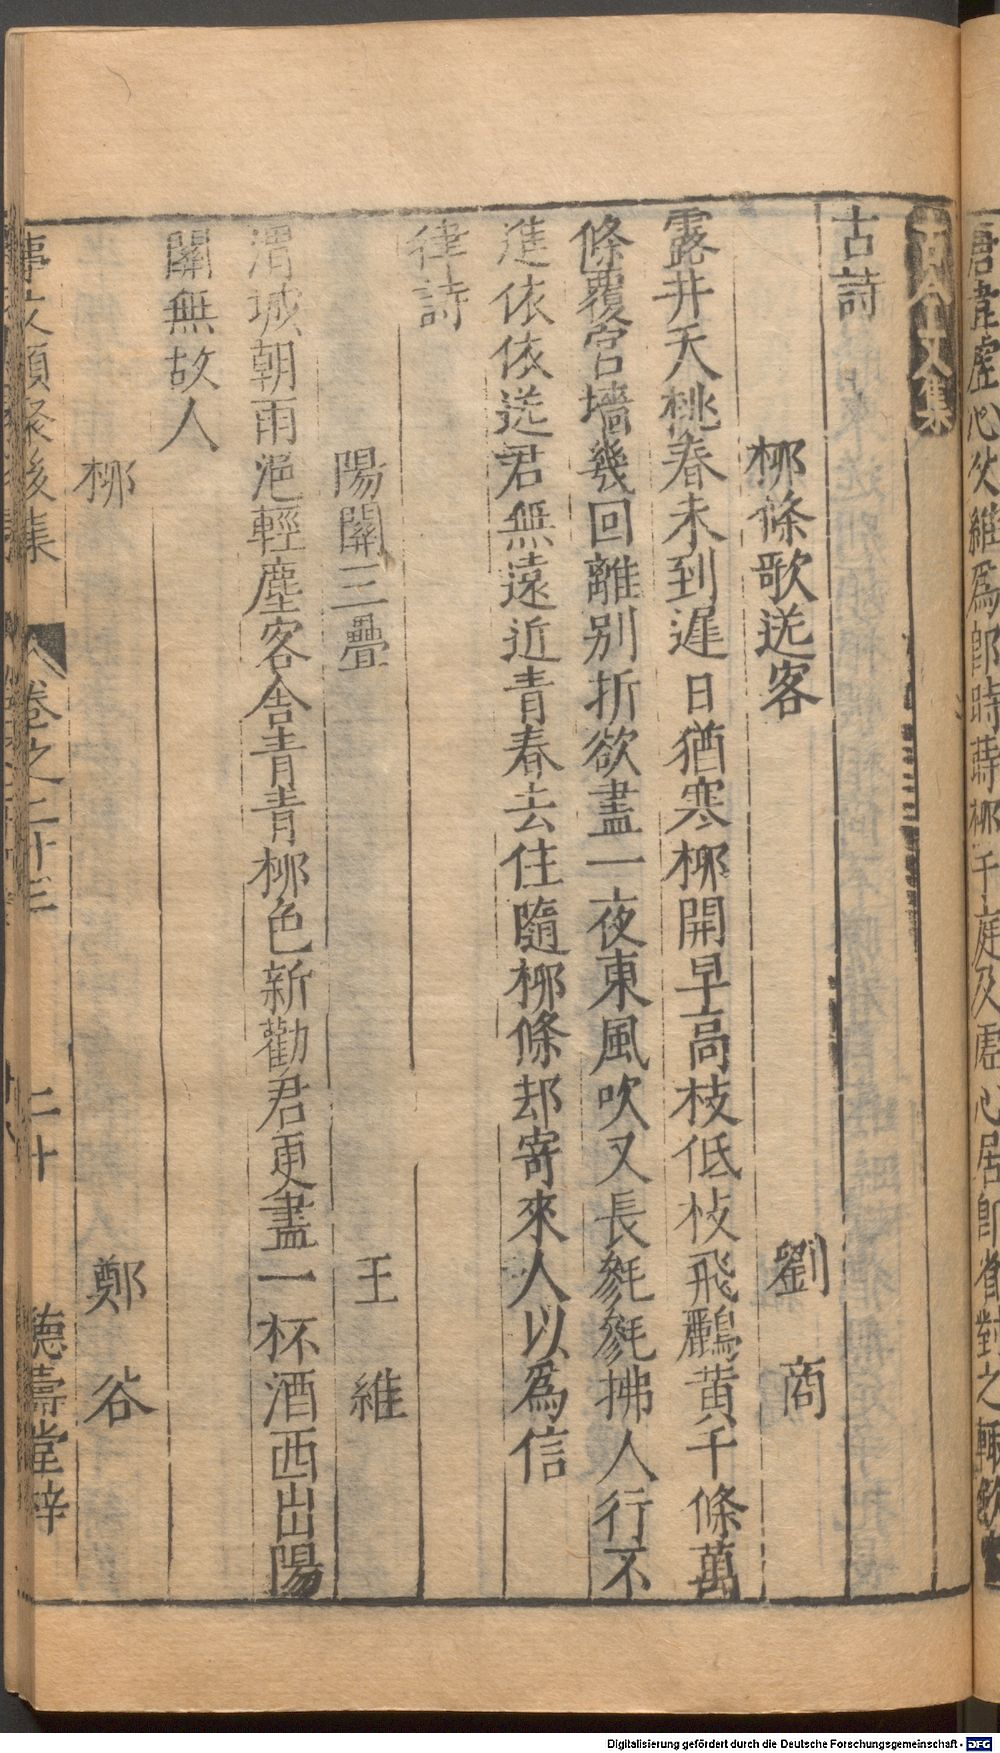 唐韋虛心父維爲郎時蒔栁于庭及虛心居郎省對之輙歛
古今文集
古詩
栁條歌送客 劉商
露井夭桃春未到遲日猶寒栁開早高枝低枝飛鸝黄千條萬
條覆宫墻幾回離别折欲盡一夜東風吹又長毿毿拂人行不
進依依送君無遠近青春去住隨栁條却寄來人以爲信
律詩
陽關三疊 王維
渭城朝雨浥輕塵客舍青青栁色新勸君更盡一杯酒西出陽
關無故人
栁 鄭谷
事文類聚後集 卷之二十三 二十 德壽堂梓
Digitalisierung gefördert durch die Deutsche Forschungsgemeinschaft - DFG